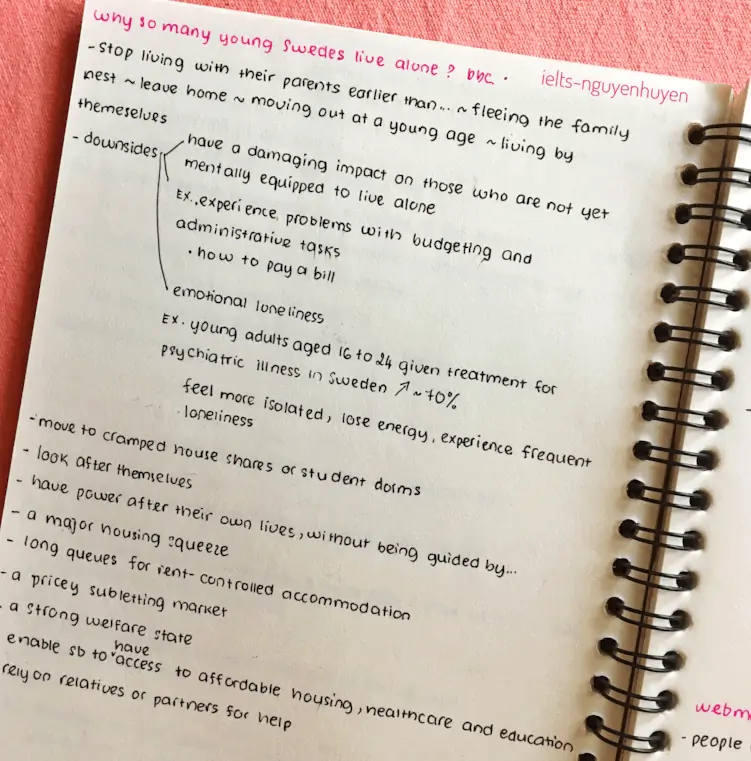 why so many young Swedes live alone? bbc.
ielts-nguyenhuyen
- stop living with their parents earlier than... ~ fleeing the family
nest ~ leave home ~ moving out at a young age ~ living by
themeselves
- downsides
have a damaging impact on those who are not yet
mentally equipped to live alone
Ex. experience problems with budgeting and
administrative tasks
• how to pay a bill
emotional loneliness
Ex. young adults aged 16 to 24 given treatment for
psychiatric illness in Sweden ↗ ~ 70%
feel more isolated, lose energy, experience frequent
loneliness
- move to cramped house shares or student dorms
- look after themselves
- have power after their own lives, without being guided by...
- a major housing squeeze
- long queues for rent-controlled accommodation
- a pricey subletting market
- a strong welfare state
enable sb to have access to affordable housing, healthcare and education
rely on relatives or partners for help
webm
- people